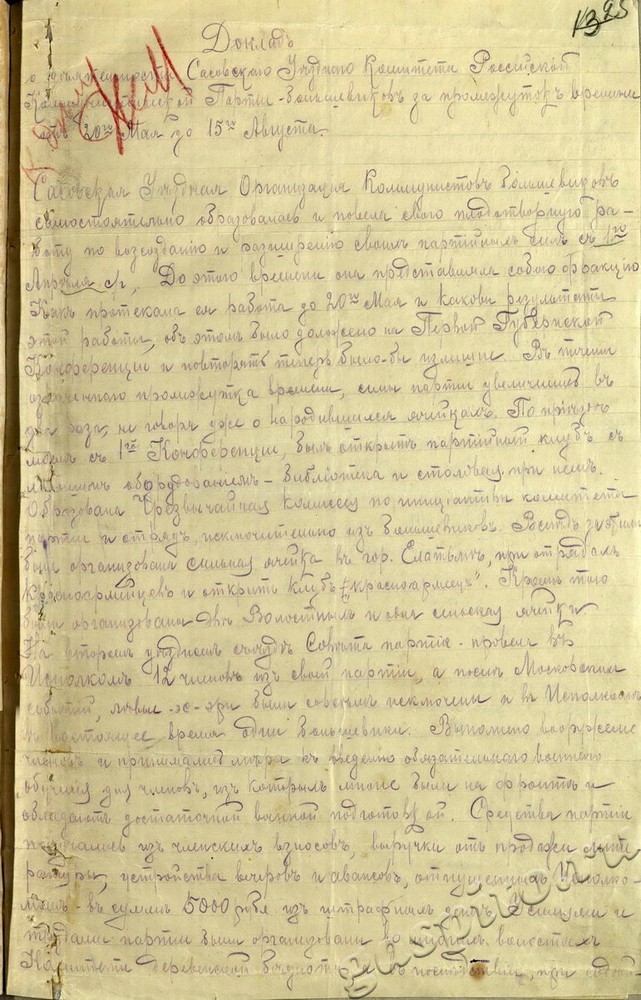 Докладъ
о Сасовскаго Уѣзднаго Комитета Россійской
Партіи-большевиковъ за промежутокъ времени
20го Мая до 15го Августа.
Сасовская Уѣздная Организація Коммунистовъ большевиковъ
самостоятельно образовалась и повела свою плодотворную ра-
боту по возсозданію и расширенію своихъ партійныхъ силъ съ 1го
Апрѣля с/г, До этого времени она представляла собою фракцію
Какъ протекала ея работа до 20го Мая и каковы результаты
этой работы, объ этомъ было доложено на Первой Губернской
Конференціи и повторять теперь было-бы излишне. Въ теченіи
промежутка времени, силы партіи увеличились въ
два раза, не говоря уже о народившихся ячейкахъ. По пріѣздѣ
съ 1й Конференціи, былъ открытъ партійный клубъ съ
оборудованіемъ - библіотека и столовая при немъ.
Образована Чрезвычайная комиссія по иниціативѣ комитета
партіи и отрядъ, исключительно изъ большевиковъ. Вслѣдъ за этимъ
была организована сильная ячейка въ гор. Елатьмѣ, при отрядахъ
красноармейцевъ и открытъ клубъ „красноармеецъ". Кромѣ того
были организованы двѣ Волостныхъ и одна сельская ячейки
На второмъ уѣздномъ съѣздѣ Совѣта партія - провела въ
Исполкомъ 12 членовъ изъ своей партіи, а послѣ Московскихъ
событій, лѣвые-эс-эры были совсѣмъ исключены и въ Исполкомѣ
въ настоящее время одни большевики. Выполнено вооруженіе
членовъ и принимались мѣры къ введенію обязательнаго военнаго
обученія для членовъ, изъ которыхъ многіе были на фронтѣ и
обладаютъ достаточной военной подготовкой. Средства партіи
изъ членскихъ взносовъ, выручки отъ продажи лите-
ратуры, устройства вечеровъ и авансовъ, отпущенныхъ Исполко-
момъ - въ суммѣ 5000 рубл изъ штрафныхъ денегъ. Усиліями и
трудами партіи были организованы во многихъ волостяхъ
Комитеты деревенской бѣдноты впослѣдствіи, при